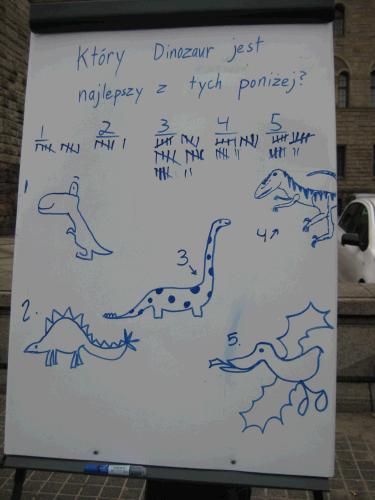 Który Dinozaur jest
najlepszy z tych poniżej?
1 2 3 4 5
1
4
3
2.
5.